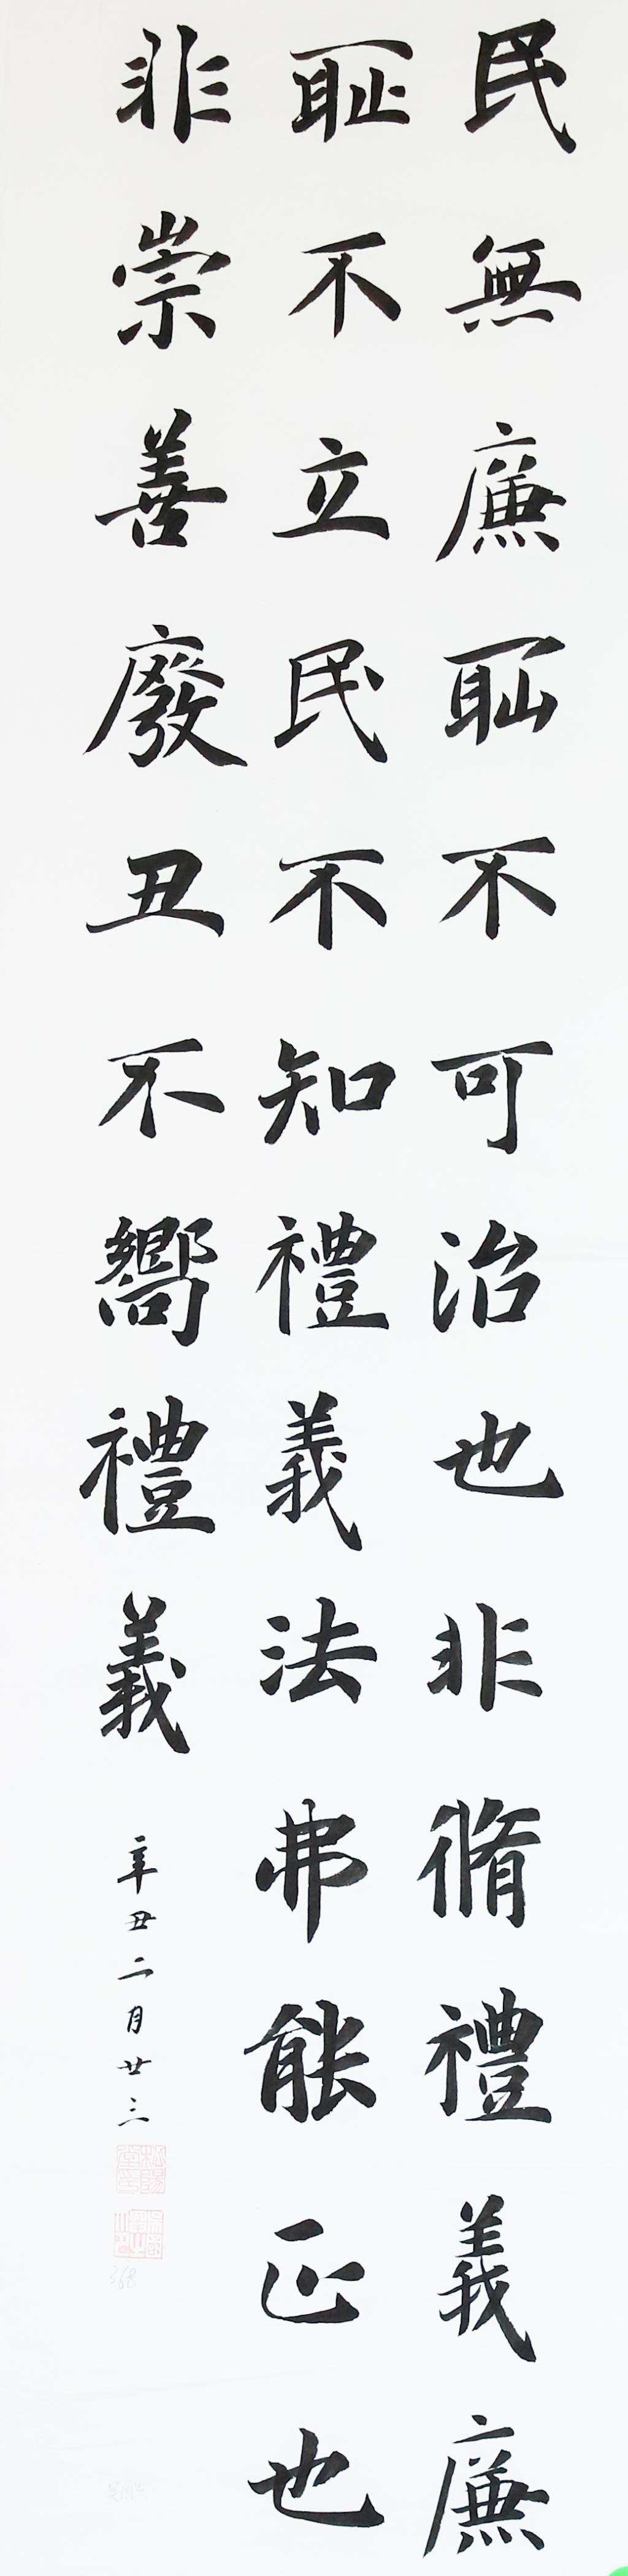 民無廉恥不可治也非脩禮義廉
恥不立民不知禮義法弗能正也
非崇善廢丑不嚮禮義
辛丑二月廿三
368